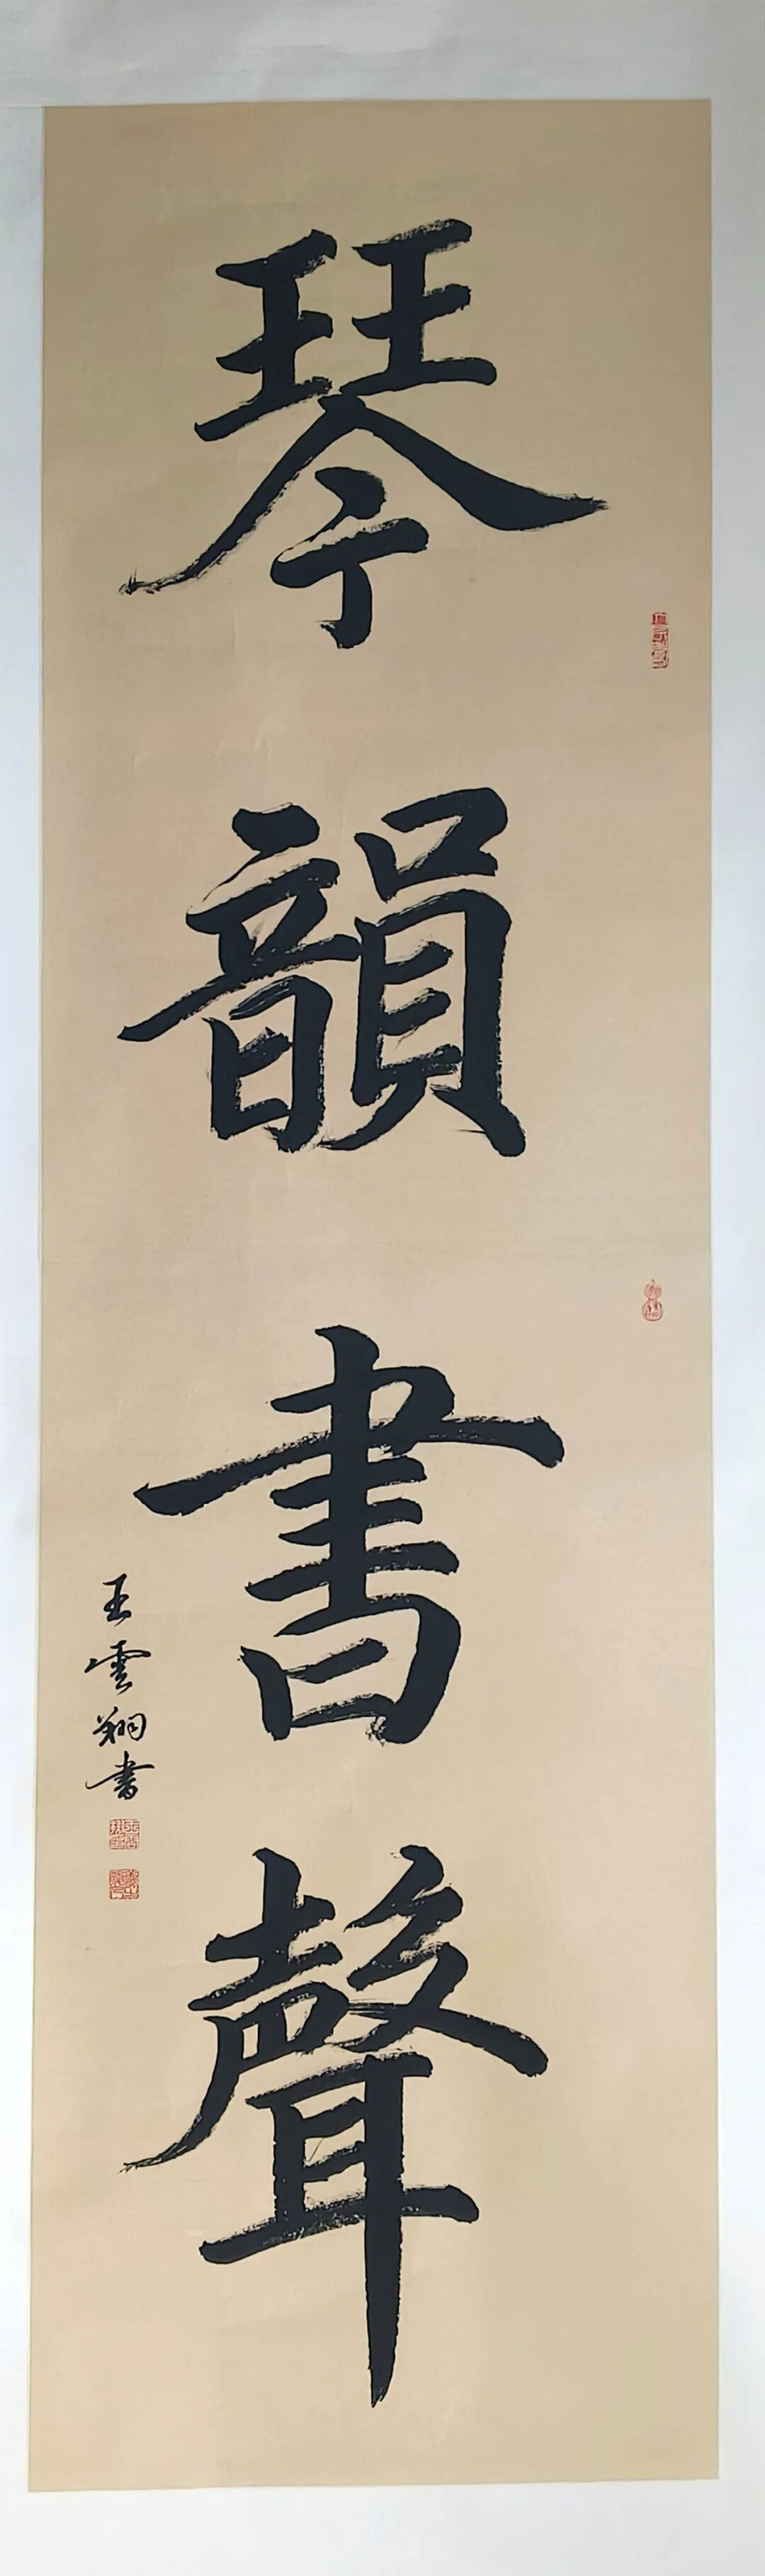 琴韻書聲
王雲翔書